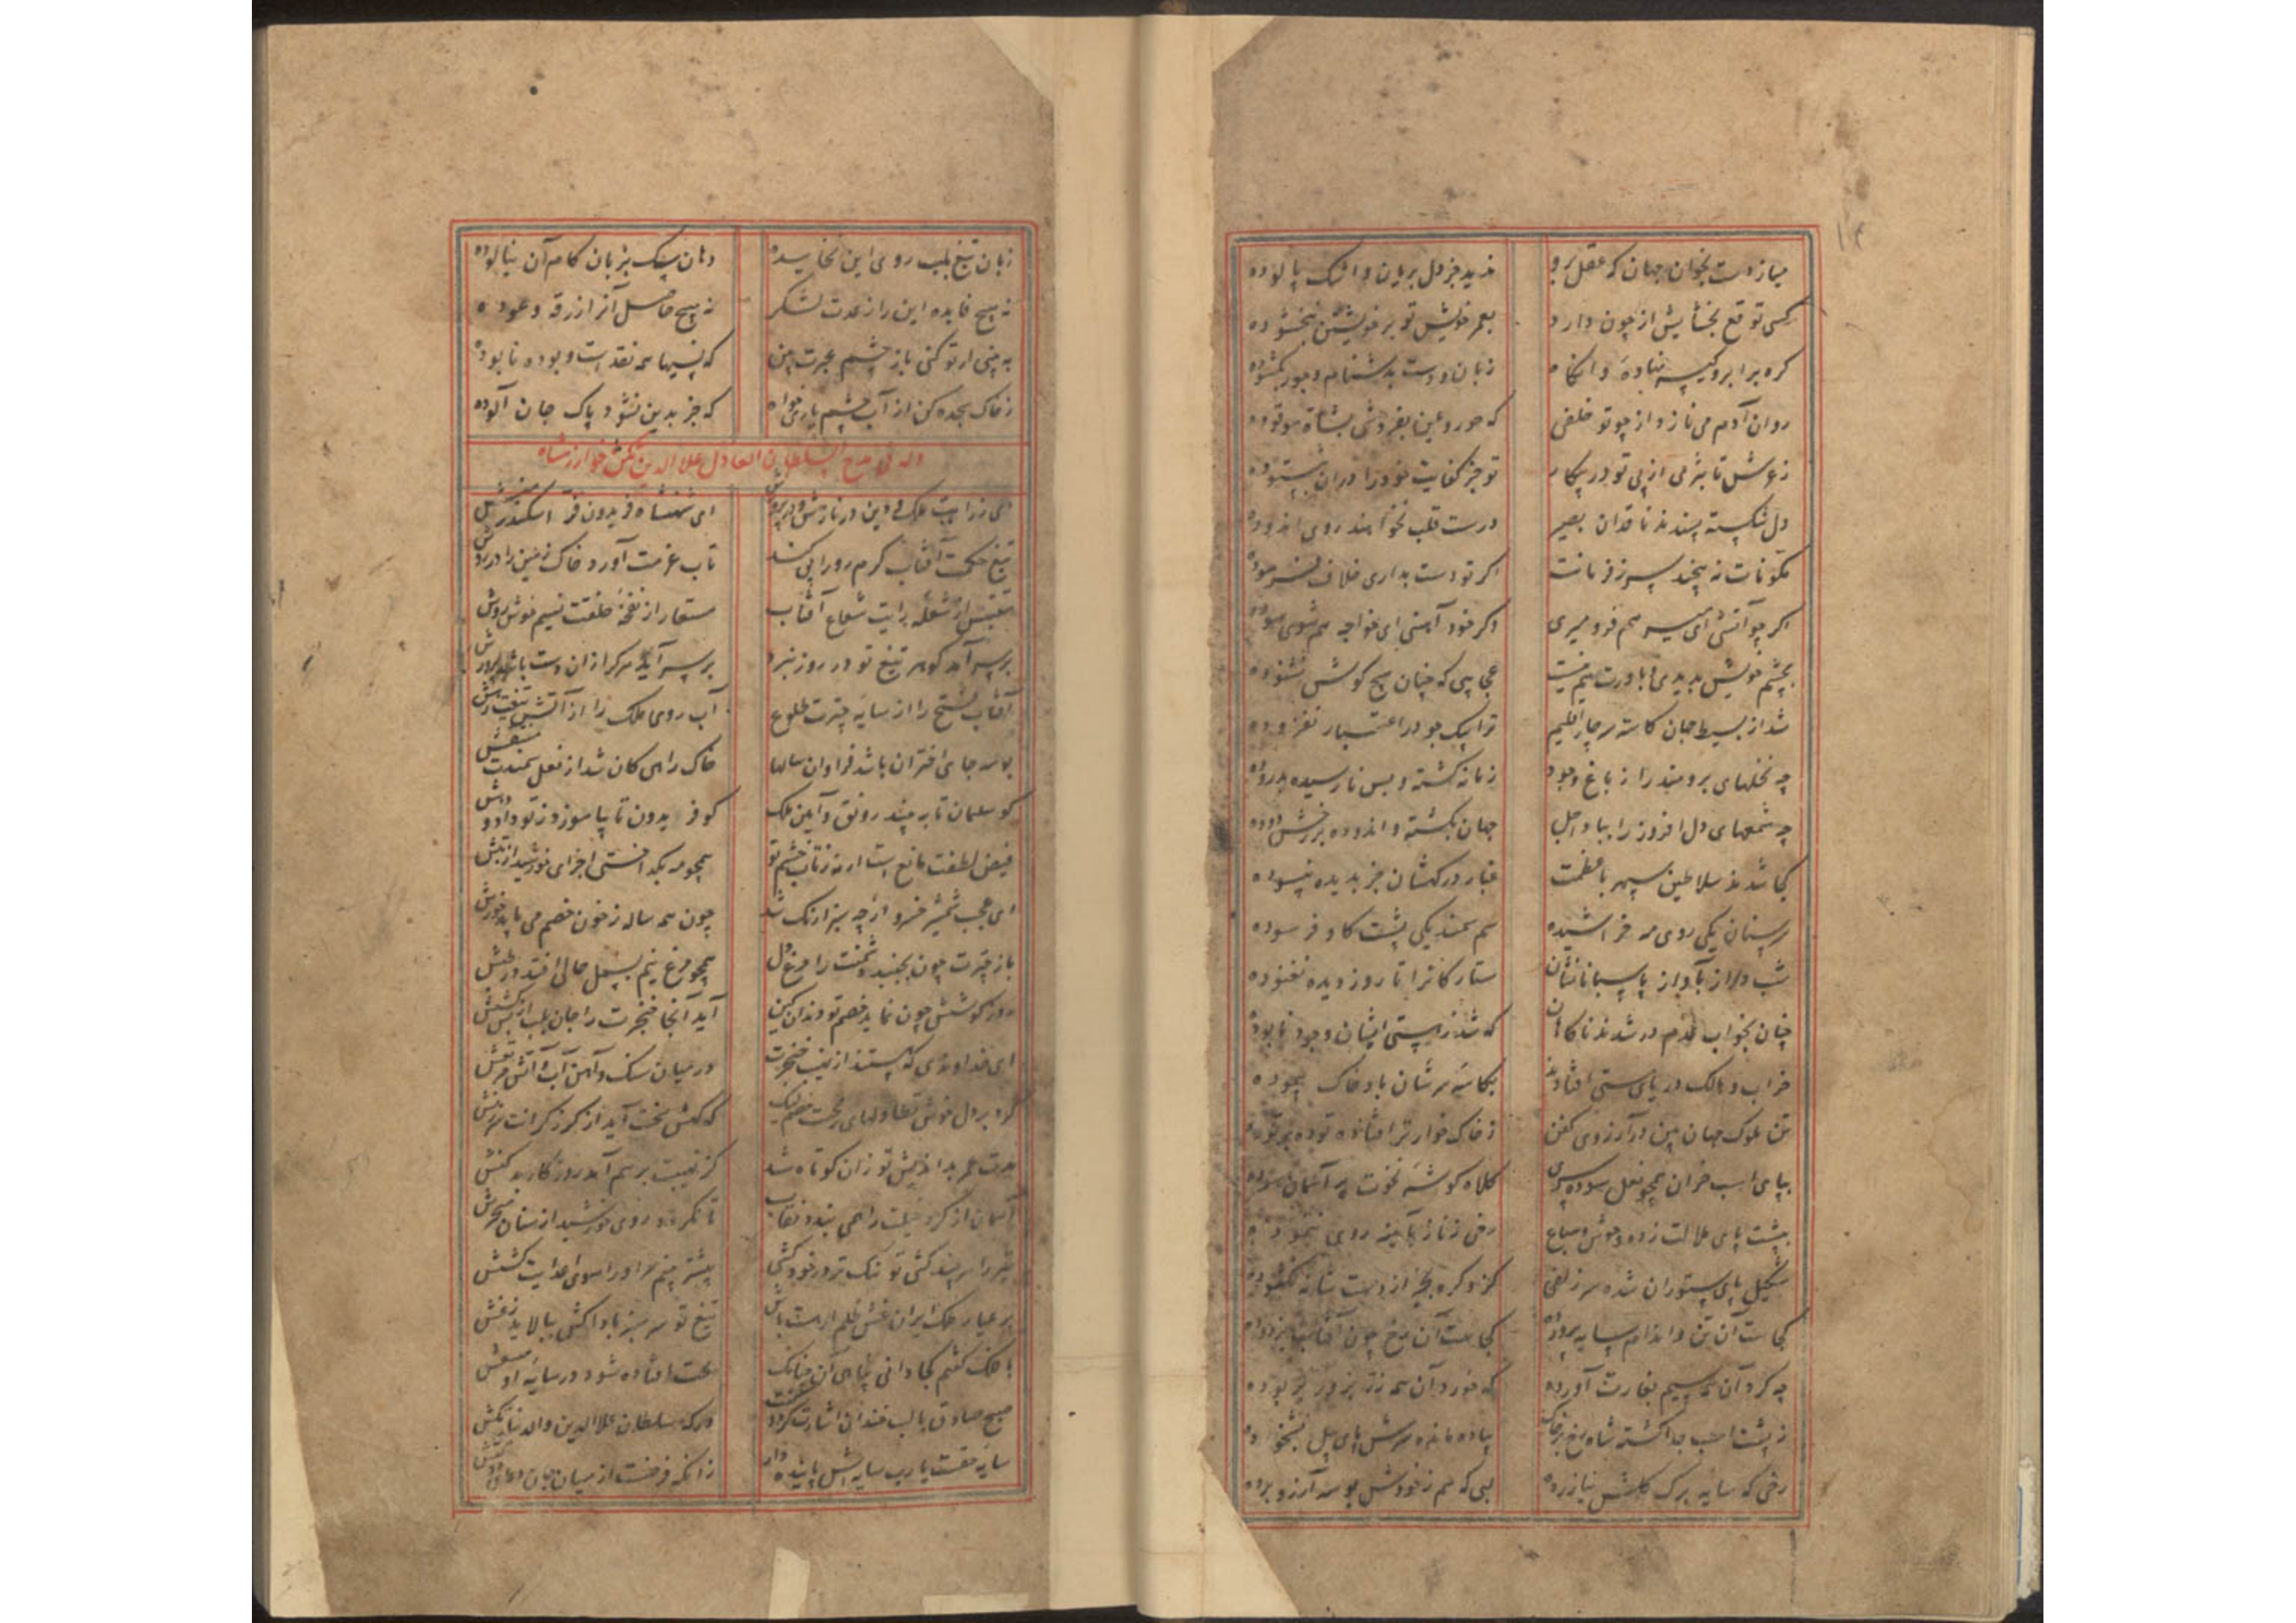 میاز دست بخوان جهان که عقل برو ندید جز دل بریان و اشک پالوده
کسی توقع بخشایش از چون دارد بعمر خویش تو بر خویشتن نبخشوده
کره بر ابرو کیسه نهاده وانکاه زبان و دست بدشنام و جور بکشوده
روان آدم می نازد از چو تو خلفی که حور و عین بفروشی بشاة موقوده
دل شکسته پسندند ناقدان بصیر درست قلب نخواهند روی اندوده
مکونات نه پیچند سر ز فرمانت اکر تو دست بداری خلاف فرموده
اکر چو آتشی ای میر هم فرو میری وکر خود آهنی ای خواجه هم شوی سوده
بچشم خویش بدیدی و باورت هم نیست عجب پی که چنان هیچ کوش نشنوده
شد از بسیط جهان کاسته سر چار اقلیم ترا یک جو در اعتبار نفزوده
چه نخلهای برومند را ز باغ وجود زمانه کشته و بس نارسیده بدروده
چه شمعهای دل افروز را بباد اجل جهان بکشته و اندوده بر رخش دوده
کجا شدند سلاطین سپهر با عظمت غبار درکهشان جز بدیده نپسوده
سر سنان یکی روی مه خراشیده سم سمند یکی پشت کاو فرسوده
شب دراز بآواز پاسبانانشان ستارکانرا تا روز دیده نغنوده
چنان بخواب عدم در شدند ناکاهان که شد ز هستی ایشان وجود نابوده
خراب و هالک در پای هستی افتادند بکاسه سرشان باد خاک پیموده
تن ملوک جهان بین در آرزوی کفن ز خاک خوارتر افتاده توده بر توده
بپای اسب خران همچو نعل سوده سری کلاه کوشه نخوت بر آسمان سوده
بپشت پای ملالت زده وحوش و سباع رخی ز ناز بآینه روی ننموده
شکیل پای ستوران شده سر زلفی کزو کره بجز از دست شانه نکشوده
کجاست آن تن و اندام سایه پرورده کجاست آن رخ چون آفتاب بزدوده
چه کرد آن همه سیم بغارت آورده که خورد آن همه زر بزور بربوده
ز پشت اسب جدا کشته شاه رخ بر خاک پیاده مانده سرش پای پیل بشخوده
رخی که سایه برک کلش نیازرده لبی که هم ز خودش بوسه آرزو بوده
زبان تیغ بلب روی این نخاریده دهان پیک بزبان کام آن نیالوده
نه هیچ فایده این را ز عدت لشکر نه هیچ حاصل آنرا ز رقه و عوده
به بینی ار تو کنی باز چشم عبرت بین که نسیها همه نقدست و بوده نابوده
ز خاک سجده کن از آب چشم یاری خواه که جز بدین نشود پاک جان آلوده
وله فی مدح السلطان العادل علاالدین تکش خوارزمشاه
ای ز رایت ملک و دین در نازش و در پرورش ای شهنشاه فریدون فر اسکندر منش
تیغ حکمت آفتاب کرم رو را پی کند تاب عزمت آورد خاک زمین را در روش
مقتبس از شعله رایت شعاع آفتاب مستعار از نفخه خلقت نسیم خوش روش
بر سر آمد کوهر تیغ تو در روز نبرد بر سر آید هر کرا زان دست باشد پرورش
آفتاب فتح را از سایه چترت طلوع آب روی ملک را از آتش تیغت
بوسه جای اختران باشد فراوان سالها خاک راهی کان شد از نعل سمندت منتقش
کو سلیمان تا به بیند رونق و آیین ملک کو فریدون تا بیاموزد ز تو داد و دهش
فیض لطفت مانع است ار نه ز تاب خشم تو همچو مه بکداختی اجزای خورشید از تبش
ای عجب شمشیر خسرو از چه سبز ارنک شد چون همه ساله ز خون خصم می باید خورش
باز چترت چون بجنبد دشمنت را مرغ دل همچو مرغ نیم بسمل حالی افتد در طپش
روز کوشش چون نماید خصم تو دندان کین آید آنجا خنجرت را جان بلب از بس کشش
ای خداوندی که هستند از نهیب خنجرت در میان سنک و آهن آب و آتش مرتعش
مدت عمر بداندیش تو زان کوتاه شد کز نهیبت بر هم آمد روزکار بد کنش
آسمان از کرد خیلت زان همی بندد نقاب تا نکردد روی خورشید از سنان
تیر را هر چند کشی تو تنک تر در خود کشی بیشتر بینم مر او را سوی اعدایت کشش
بر عیار ملک ایران غش ظلم ار هست باش تیغ تو سر سبز بادا کش بپالاید ز غش
با فلک کفتم کجا دانی پناهی آن چنانک بخت افتاده شود در سایه او منتعش
صبح صادق با لب خندان اشارت کرد و کفت درکه سلطان علاالدین والدنیا تکش
سایه حقست یا رب سایه اش پاینده دار زانکه فرضست از میان جان دعای دولتش